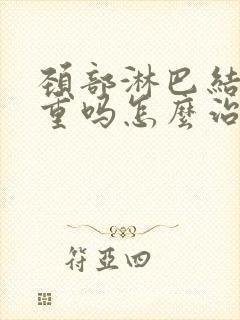 頚部淋巴結
重吗怎麼治
符亞四